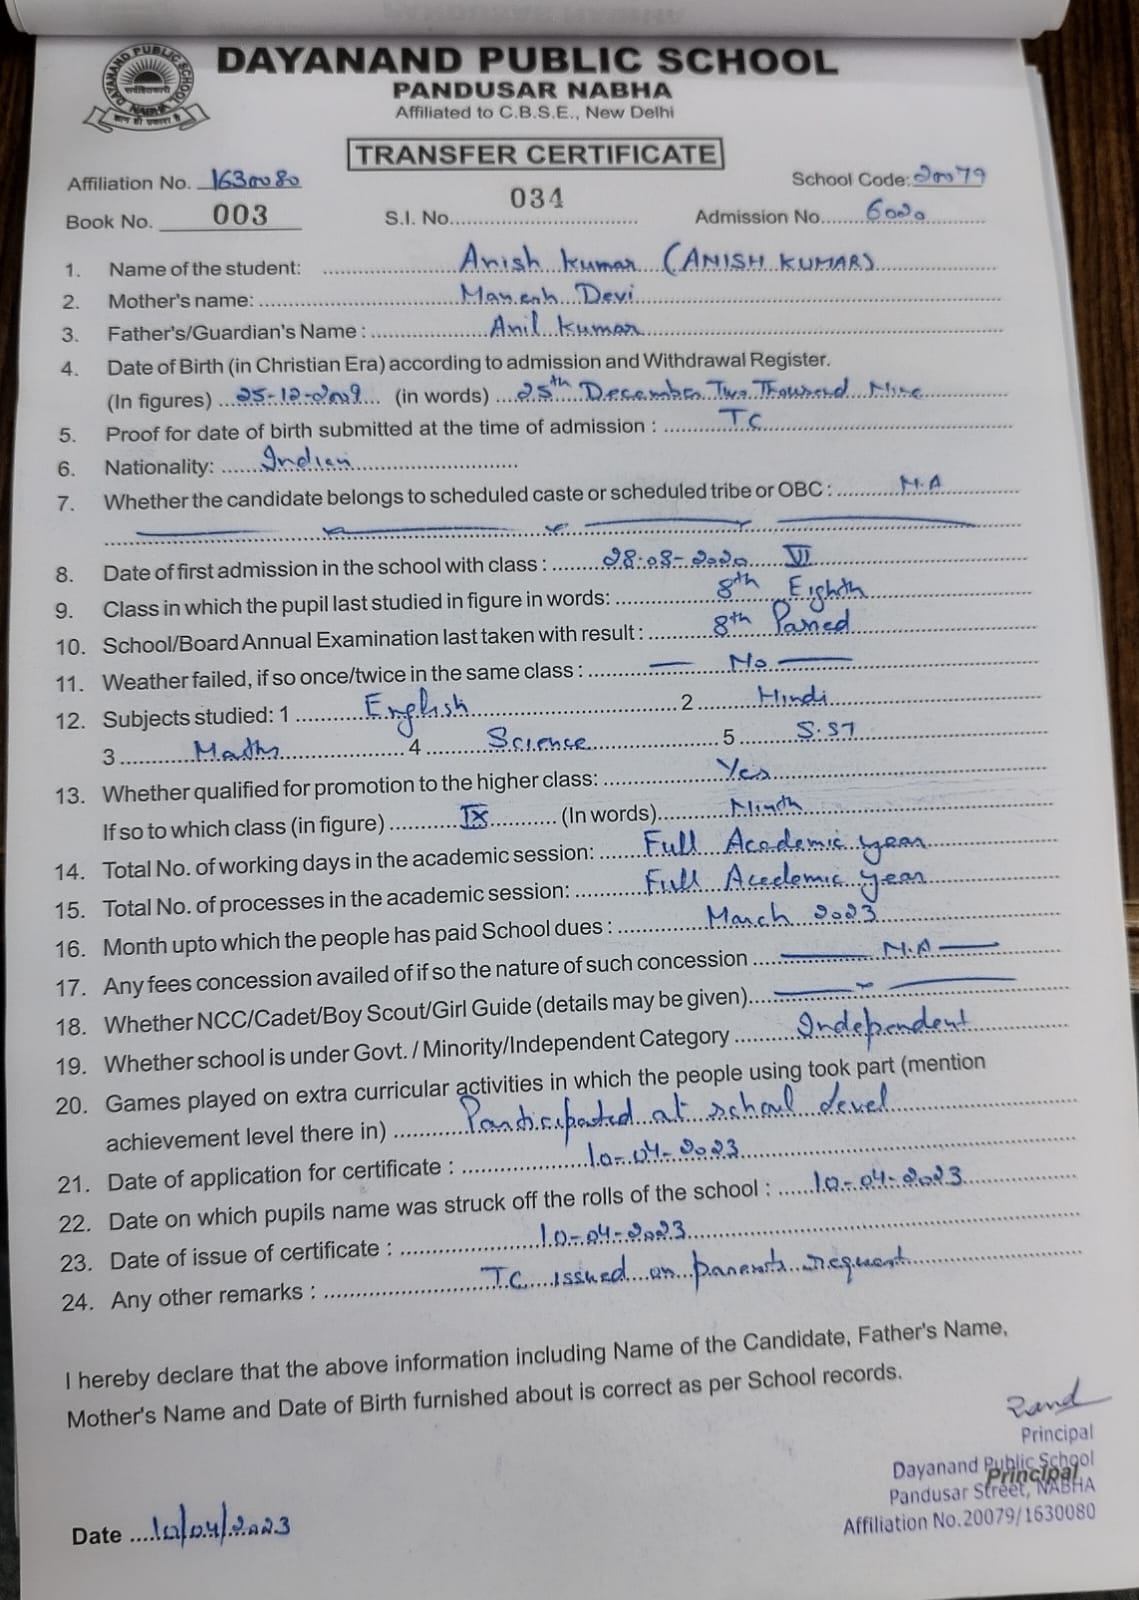 DAYANAND PUBLIC SCHOOL
PANDUSAR NABHA
Affiliated to C.B.S.E., New Delhi
DAYANAND PUBLIC SCHOOL
NABHA
TRANSFER CERTIFICATE
Affiliation No. 1630080 School Code: 20079
Book No. 003 S.I. No. 034 Admission No. 6020
1. Name of the student: Anish Kumar (ANISH KUMAR)
2. Mother's name: Devi
3. Father's/Guardian's Name : Anil Kumar
4. Date of Birth (in Christian Era) according to admission and Withdrawal Register.
(In figures) 25-12-2009 (in words) 25th December Two Thousand Nine
5. Proof for date of birth submitted at the time of admission : TC
6. Nationality: Indian
7. Whether the candidate belongs to scheduled caste or scheduled tribe or OBC : N.A
8. Date of first admission in the school with class : 28-08-2020 VI
9. Class in which the pupil last studied in figure in words: 8th Eighth
10. School/Board Annual Examination last taken with result : 8th Passed
11. Weather failed, if so once/twice in the same class : — No —
12. Subjects studied: 1 English 2 Hindi
3 Maths 4 Science 5 S.ST
13. Whether qualified for promotion to the higher class: Yes
If so to which class (in figure) IX (In words) Ninth
14. Total No. of working days in the academic session: Full Academic year
15. Total No. of processes in the academic session: Full Academic year
16. Month upto which the people has paid School dues : March 2023
17. Any fees concession availed of if so the nature of such concession — N.A —
18. Whether NCC/Cadet/Boy Scout/Girl Guide (details may be given)
19. Whether school is under Govt. / Minority/Independent Category Independent
20. Games played on extra curricular activities in which the people using took part (mention
achievement level there in) Participated at school level
21. Date of application for certificate : 10-04-2023
22. Date on which pupils name was struck off the rolls of the school : 10-04-2023
23. Date of issue of certificate : 10-04-2023
24. Any other remarks : TC issued on parents request
I hereby declare that the above information including Name of the Candidate, Father's Name,
Mother's Name and Date of Birth furnished about is correct as per School records.
Principal
Dayanand Public School
Principal
Pandusar Street, NABHA
Affiliation No.20079/1630080
Date 10/04/2023